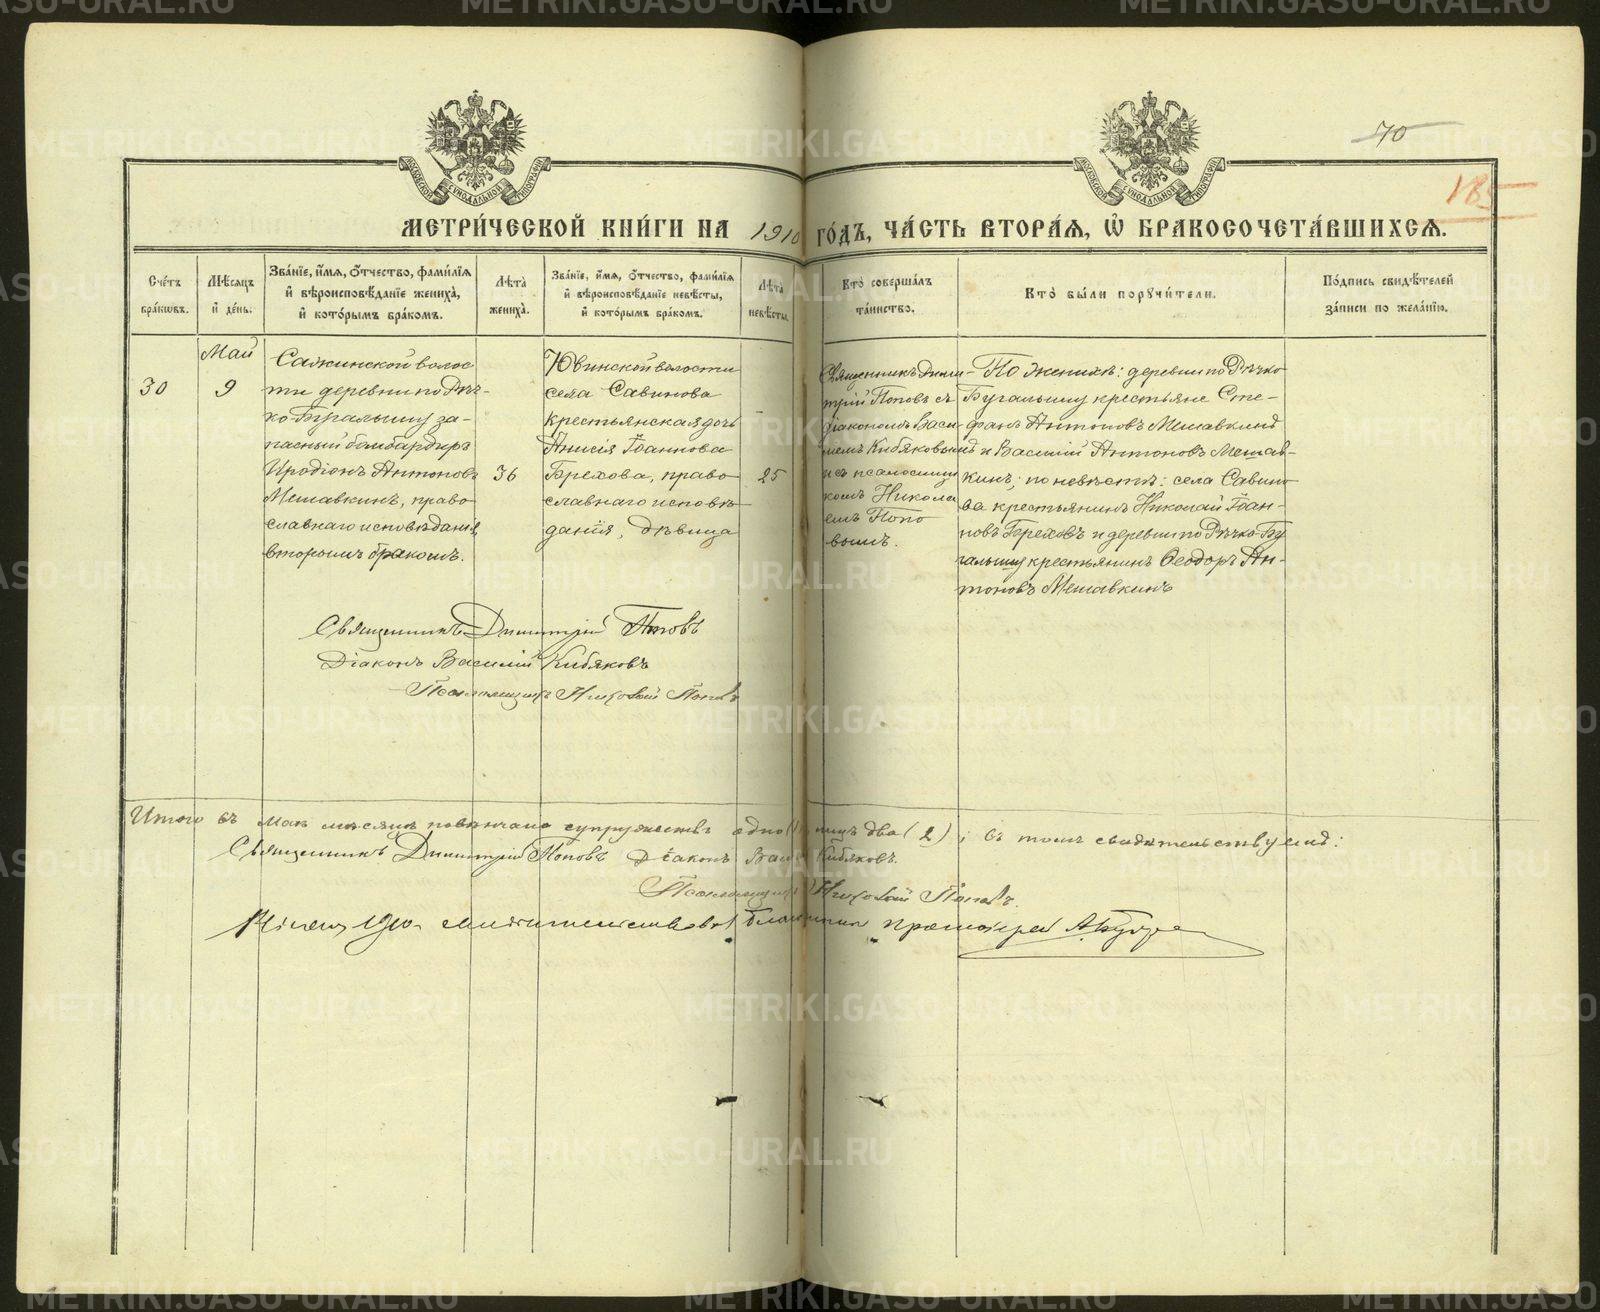 70
185
МЕТРИ́ЧЕСКОЙ КНИ́ГИ НА 1910 ГО́ДЪ, ЧА́СТЬ ВТОРА́Я, Ѡ҆ БРАКОСОЧЕТА́ВШИХСЯ.
МОСКОВСКОЙ СѴНОДАЛЬНОЙ ТИПОГРАФІИ
МОСКОВСКОЙ СѴНОДАЛЬНОЙ ТИПОГРАФІИ
Сче́тъ
бра́кѡвъ.
Мѣ́сяцъ
и҆ де́нь.
Зва́нїе, и҆́мя, ѻ҆́тчество, фами́лїя
и҆ вѣроисповѣ́данїе жениха̀,
и҆ кото́рымъ бра́комъ.
Лѣ́та
жениха̀.
Зва́нїе, и҆́мя, ѻ҆́тчество, фами́лїя
и҆ вѣроисповѣ́данїе невѣ́сты,
и҆ кото́рымъ бра́комъ.
Лѣ́та
невѣ́сты.
Кто̀ соверша́лъ
та́инство.
Кто̀ бы́ли поꙋчи́тели.
По́дпись свидѣ́телей
за́писи по жела́нїю.
30
Май
9
Сажинской волос
ти деревни по Рѣч-
ко-Бугалышу за-
пасный бомбардиръ
Иродіонъ Антоновъ
Мешавкинъ, право
славнаго исповѣданія,
вторымъ бракомъ.
36
Ювинской волости
села Савинова
крестьянская дочь
Анисія Іоаннова
Брехова, право
славнаго исповѣ
данія, дѣвица
25
Священникъ Дими-
трій Поповъ съ
діакономъ Васи-
ліемъ Кибяковымъ
и съ псаломщи
комъ Никола
емъ Попо
вымъ.
По женихѣ: деревни по Рѣчко
Бугалышу крестьяне Сте-
фанъ Антоновъ Мешавкинъ
и Василій Антоновъ Мешав-
кинъ; по невѣстѣ: села Савино
ва крестьянинъ Николай Іоан-
новъ Бреховъ и деревни по Рѣчко-Бу
галышу крестьянинъ Ѳеодоръ Ан-
тоновъ Мешавкинъ
Священникъ Димитрій Поповъ
Діаконъ Василій Кибяковъ
Псаломщикъ Николай Поповъ
Итого въ маѣ мѣсяцѣ повѣнчано супружествъ одно (1) лицъ два (2); въ томъ свидѣтельствуемъ:
Священникъ Димитрій Поповъ Діаконъ Вас Кибяковъ.
Псаломщикъ Николай Поповъ.
1910 свидѣтельствовалъ Благочинный протоіерей А.
METRIKI.GASO-URAL.RU